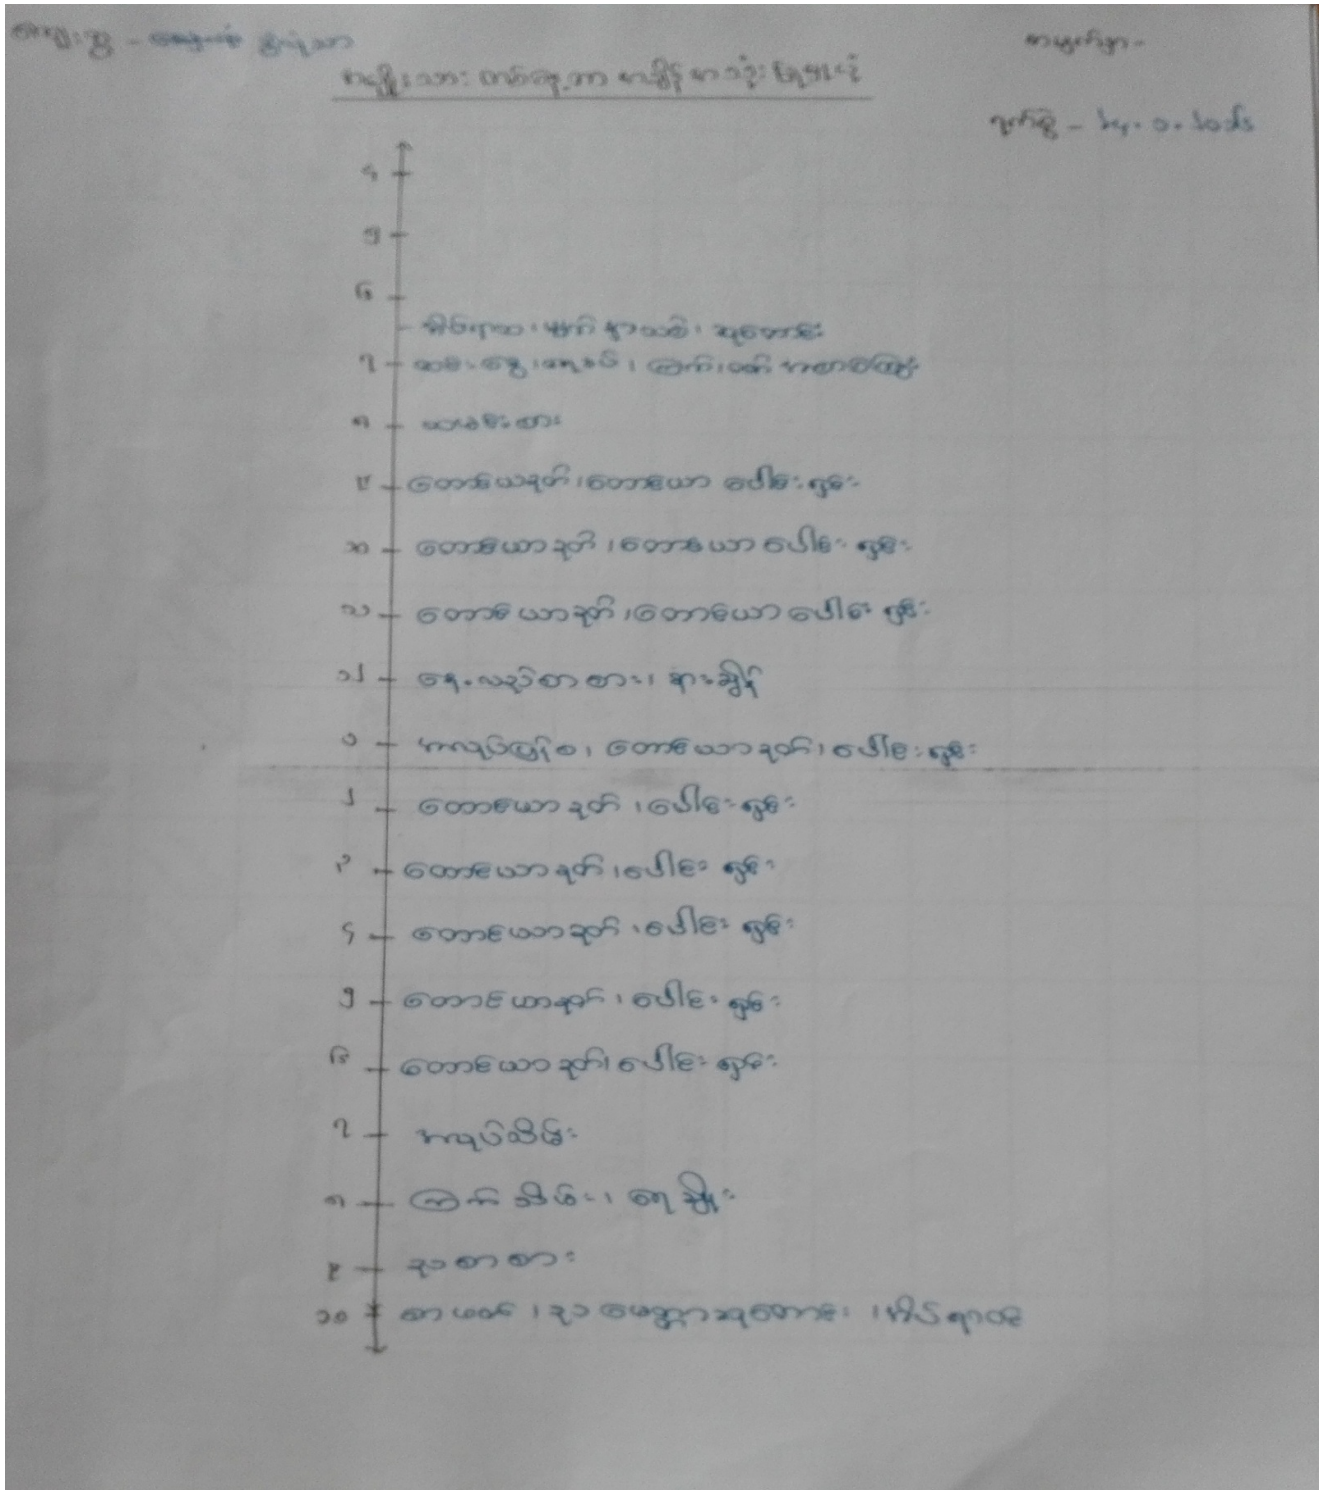 ကျေးရွာ -
စာမျက်နှာ -
အမျိုးသား တစ်နေ့တာ အချိန် အသုံးပြုမှုပုံ
ရက်စွဲ - ၂၄.၁.၂၀၁၄
၄
၅
၆
အိပ်ရာထ၊ မျက်နှာသစ်၊ ဆုတောင်း
၇ ထမင်း ကြက်၊ ဝက် အစာကျွေး
၈ ထမင်းစား
၉ တောင်ယာခုတ်၊ တောင်ယာ ပေါင်းရှင်း
၁၀ တောင်ယာခုတ်၊ တောင်ယာ ပေါင်းရှင်း
၁၁ တောင်ယာခုတ်၊ တောင်ယာ ပေါင်းရှင်း
၁၂ နေ့လည်စာစား၊ နားချိန်
၁ အလုပ်ပြန်စ၊ တောင်ယာခုတ်၊ ပေါင်းရှင်း
၂ တောင်ယာခုတ်၊ ပေါင်းရှင်း
၃ တောင်ယာခုတ်၊ ပေါင်းရှင်း
၄ တောင်ယာခုတ်၊ ပေါင်းရှင်း
၅ တောင်ယာခုတ်၊ ပေါင်းရှင်း
၆ တောင်ယာခုတ်၊ ပေါင်းရှင်း
၇ အလုပ်သိမ်း
၈ ကြက်သိမ်း၊ ရေချိုး
၉ ညစာစား
၁၀ စာဖတ်၊ ည မေတ္တာဆုတောင်း၊ အိပ်ရာဝင်